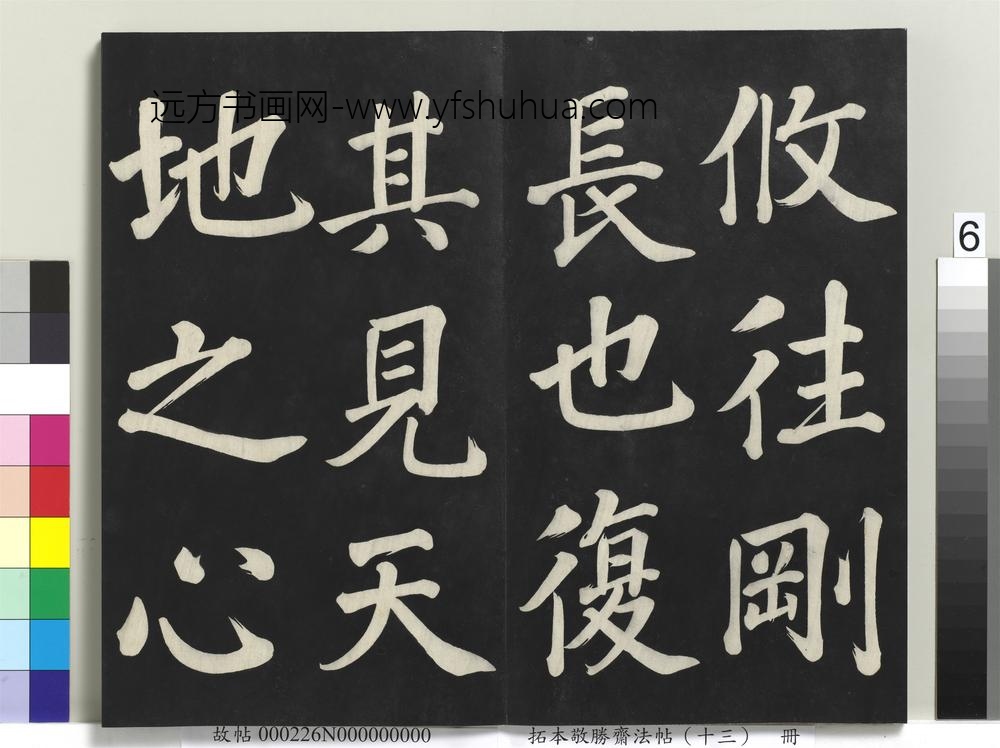 远方书画网-www.yfshuhua.com
攸往剛
長也復
其見天
地之心
6
故帖 000226N000000000
拓本敬勝齋法帖（十三） 冊